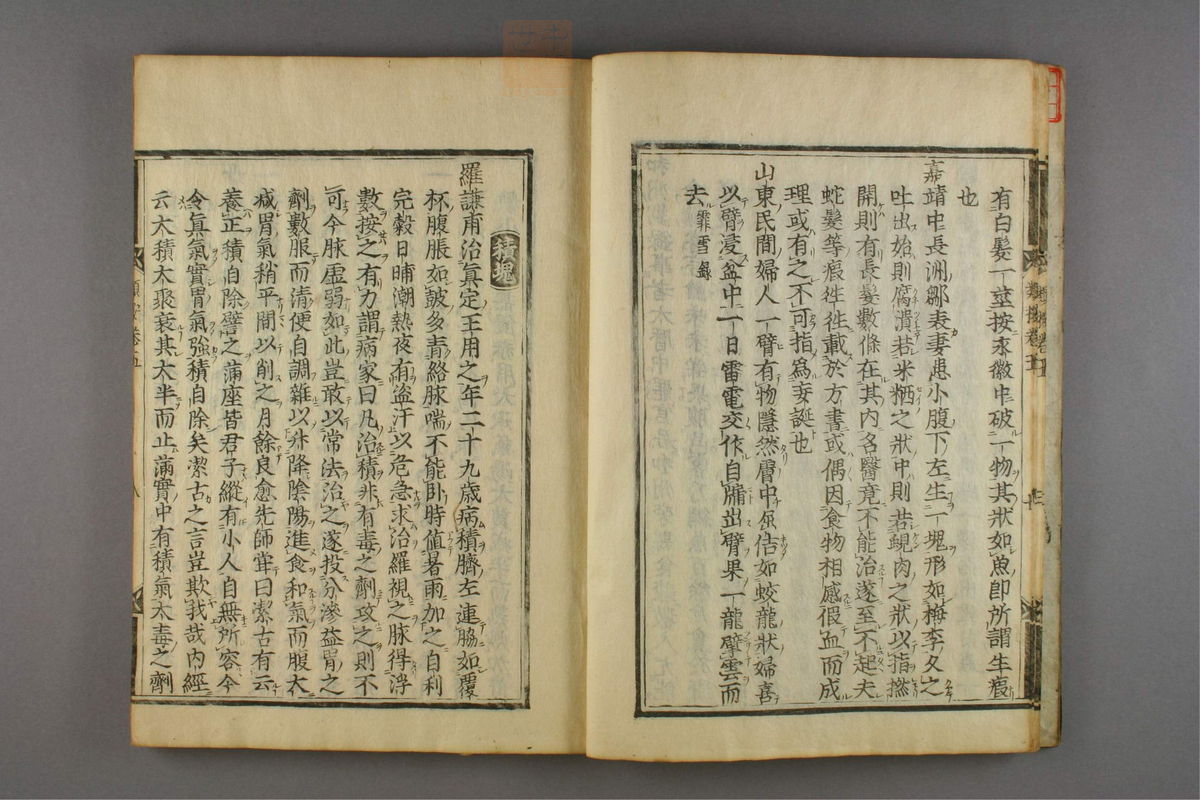 有白髮一莖按永徽中破一物其狀如魚卽所謂生瘕
也
嘉靖中長洲鄒表妻患小腹下左生一塊形如梅李久之
吐出始則腐潰若米粞之狀中則若蜆肉之狀以指撚
開則有長髮數條在其內名醫竟不能治遂至不起夫
蛇髮等瘕徃徃載於方書或偶因食物相感假血而成
理或有之不可指爲妄誕也
山東民間婦人一臂有物隱然膚中屈佶如蛟龍狀婦喜
以臂浸盆中一日雷電交作自牖出臂果一龍擘雲而
去霏雪錄
積塊
羅謙甫治眞定王用之年二十九歲病積臍左連脇如覆
杯腹脹如皷多青絡脉喘不能卧時値暑雨加之自利
完穀日晡潮熱夜有盗汗以危急求治羅視之脉得浮
數按之有力謂病家曰凡治積非有毒之劑攻之則不
可今脉虛弱如此豈敢以常法治之遂投分滲益胃之
劑數服而清便自調雜以升降陰陽進食和氣而腹大
减胃氣稍平間以削之月餘良愈先師甞曰潔古有云
養正積自除譬之滿座皆君子縱有小人自無所容今
令眞氣實胃氣強積自除矣潔古之言豈欺我哉內經
云大積大聚衰其太半而止滿實中有積氣大毒之劑